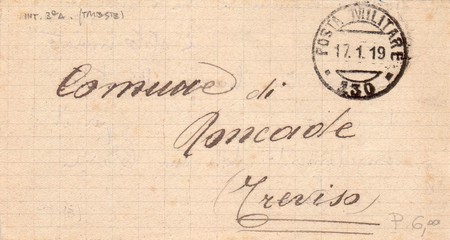 INT. 2ª2. (TRIESTE)
POSTA MILITARE
17.1.19
* 130 *
Comune di
Roncade
(Treviso)
P. 6,00